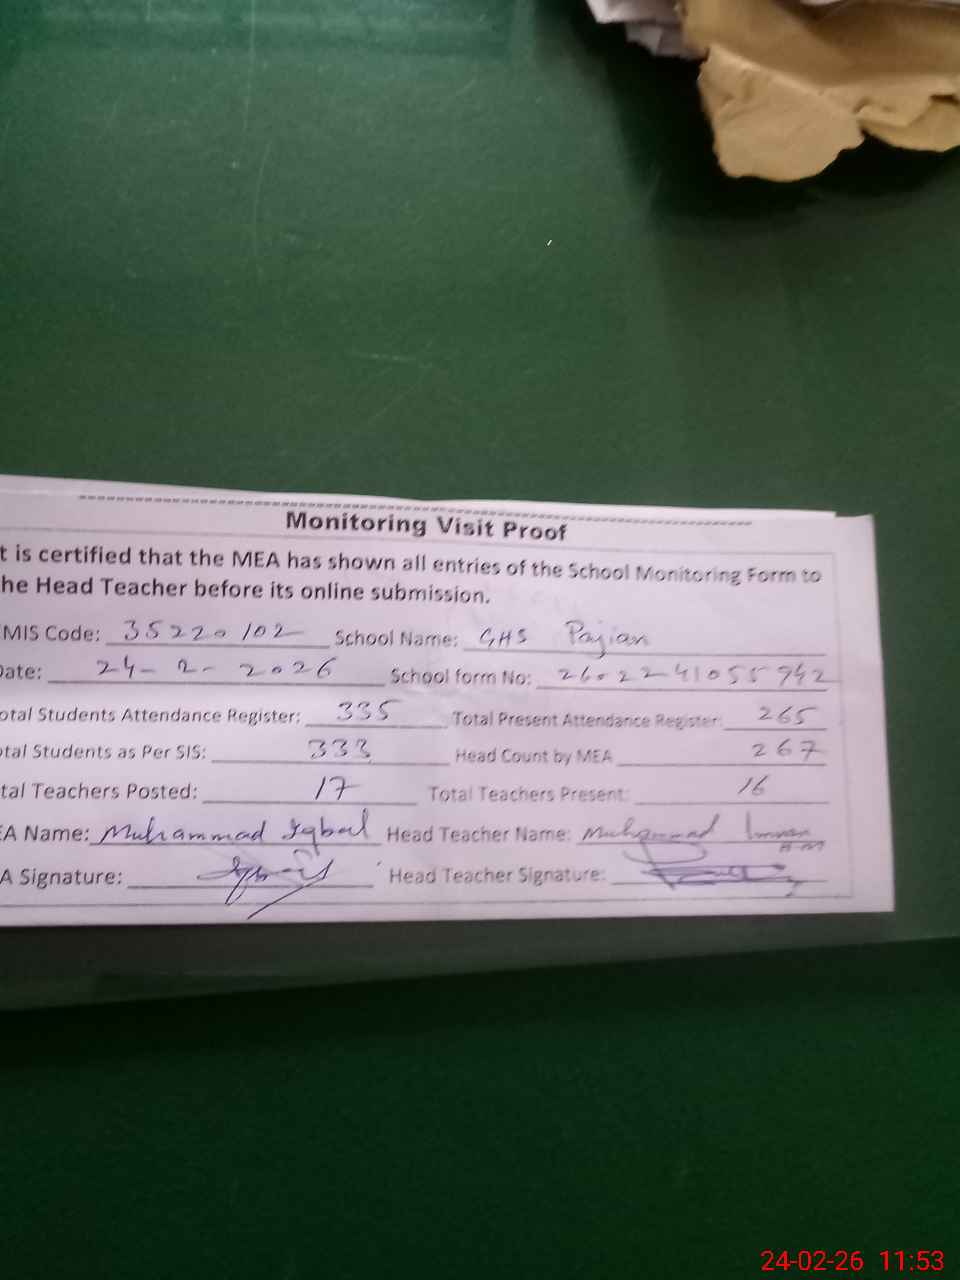 Monitoring Visit Proof
t is certified that the MEA has shown all entries of the School Monitoring Form to
he Head Teacher before its online submission.
MIS Code: 35220102 School Name: GHS Pajian
Date: 24-2-2026 School form No: 26022241055942
otal Students Attendance Register: 335 Total Present Attendance Register: 265
otal Students as Per SIS: 333 Head Count by MEA 267
tal Teachers Posted: 17 Total Teachers Present: 16
EA Name: Muhammad Iqbal Head Teacher Name: Muhammad Imran
A Signature: Head Teacher Signature:
24-02-26 11:53